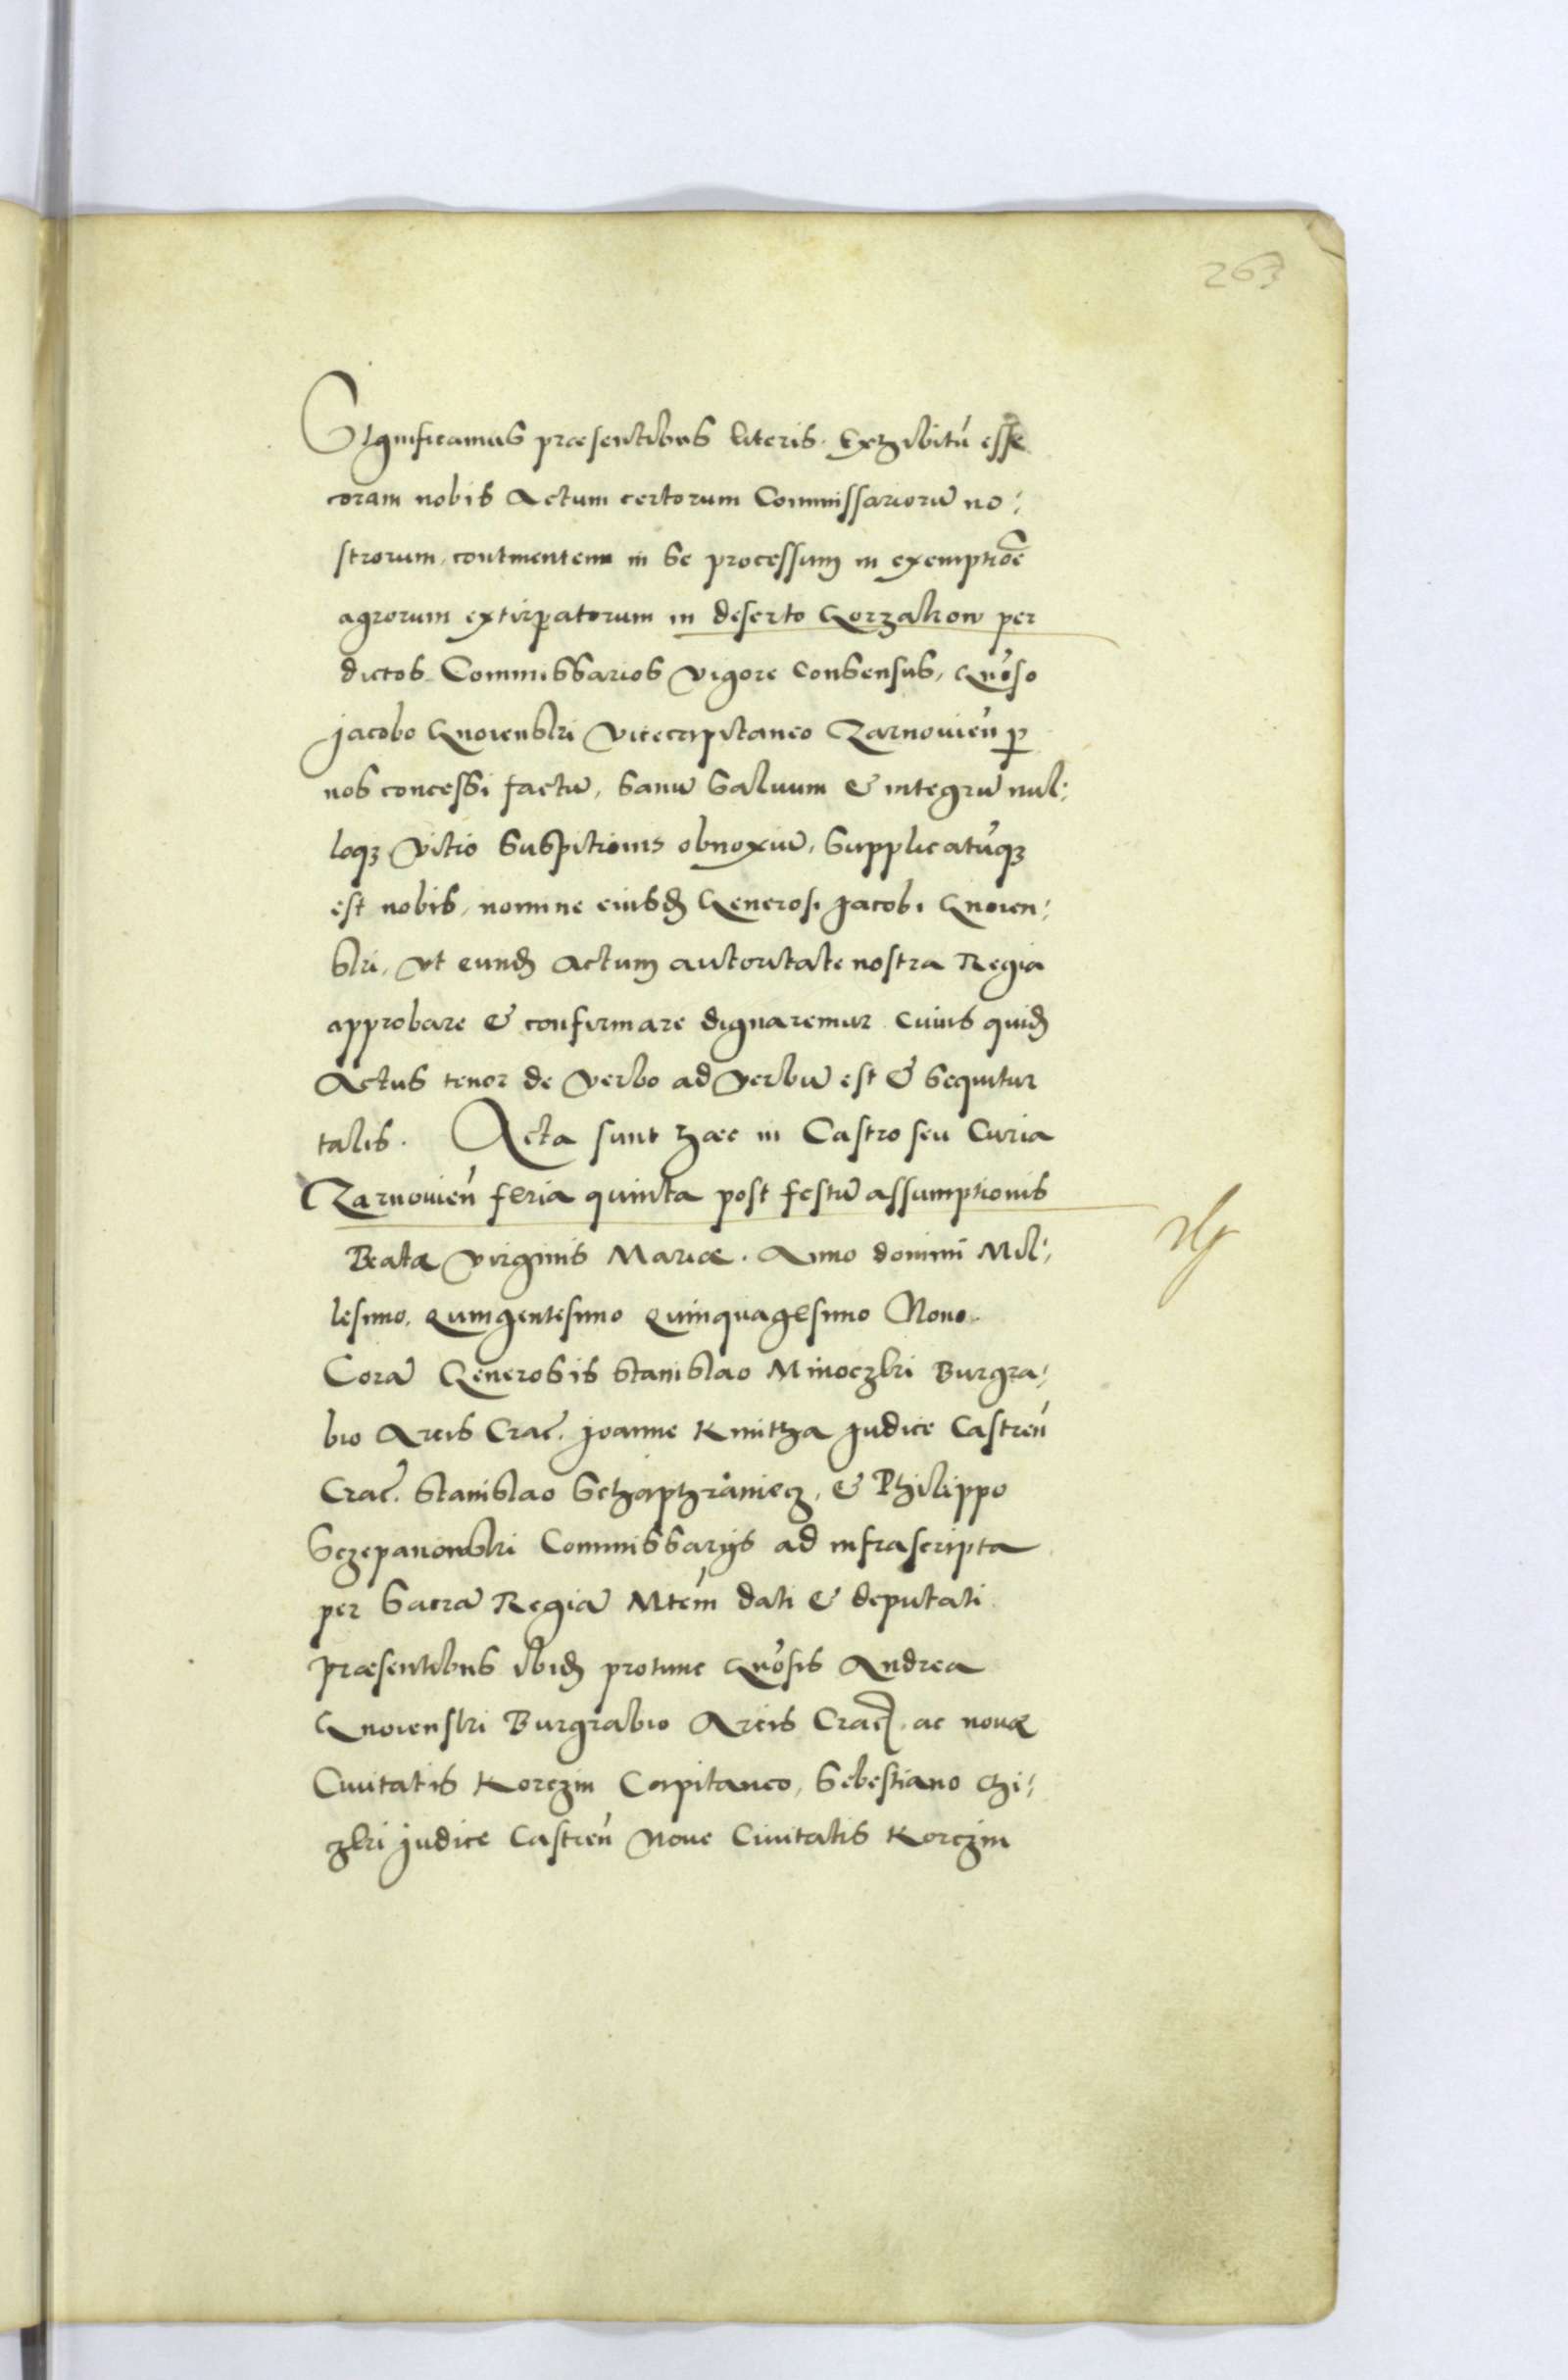 263
Significamus præsentibus literis. Exhibitũ esse
coram nobis Actum certorum Commissariorũ no:
strorum, continentem in se processum in exemptiõe
agrorum extirpatorum in deserto Gorzakow per
dictos Commissarios vigore consensus, Gñoso
Jacobo Gnoienski vicecapitaneo Zarnovieñ p
nos concessi factũ, sanũ salvum & integrũ nul:
loqz vitio suspitionis obnoxiũ, supplicatũqz
est nobis, nomine eiusd Generosi Jacobi Gnoien:
ski, vt eund Actum autoritate nostra Regia
approbare & confirmare dignaremur cuius quid
Actus tenor de verbo ad verbũ est & sequitur
talis. Acta sunt hæc in Castro seu Curia
Zarnovieñ feria quinta post festũ assumptionis
Beatæ virginis Mariæ. Anno domini Mil:
lesimo. Quingentesimo Quinquagesimo Nono.
Corã Generosis Stanislao Minoczki Burgra:
bio Arcis Crac̃. Joanne Kmitha Judice Castreñ
Crac̃. Stanislao Schaphraniecz, & Philippo
Sczepanowski Commissarijs ad infrascripta
per Sacrã Regiã Mtem̃ dati & deputati
præsentibus ibid protunc Gñosis Andrea
Gnoienski Burgrabio Arcis Crac. ac novæ
Civitatis Korczin Capitaneo, Sebestiano Chi:
czki Judice Castreñ Nove Civitatis Korczin